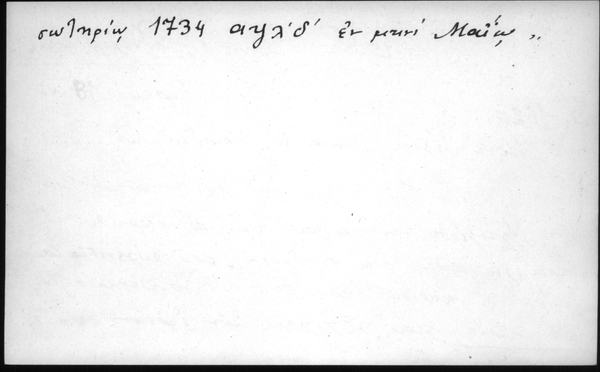 σωτηρίῳ 1734 αψλ'δ' ἐν μηνί Μαΐῳ "